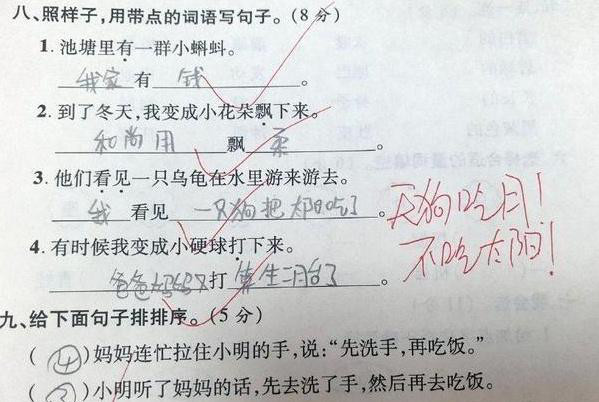 八、照样子,用带点的词语写句子。(8分)
1. 池塘里有一群小蝌蚪。
我家有 钱 。
2. 到了冬天,我变成小花朵飘下来。
和尚用 飘 柔 。
3. 他们看见一只乌龟在水里游来游去。
我 看见 一只狗把太阳吃了 。
天狗吃月!
不吃太阳!
4. 有时候我变成小硬球打下来。
爸爸妈妈又 打 算生二月台了 。
九、给下面句子排排序。(5分)
(④)妈妈连忙拉住小明的手,说:“先洗手,再吃饭。”
(③)小明听了妈妈的话,先去洗了手,然后再去吃饭。